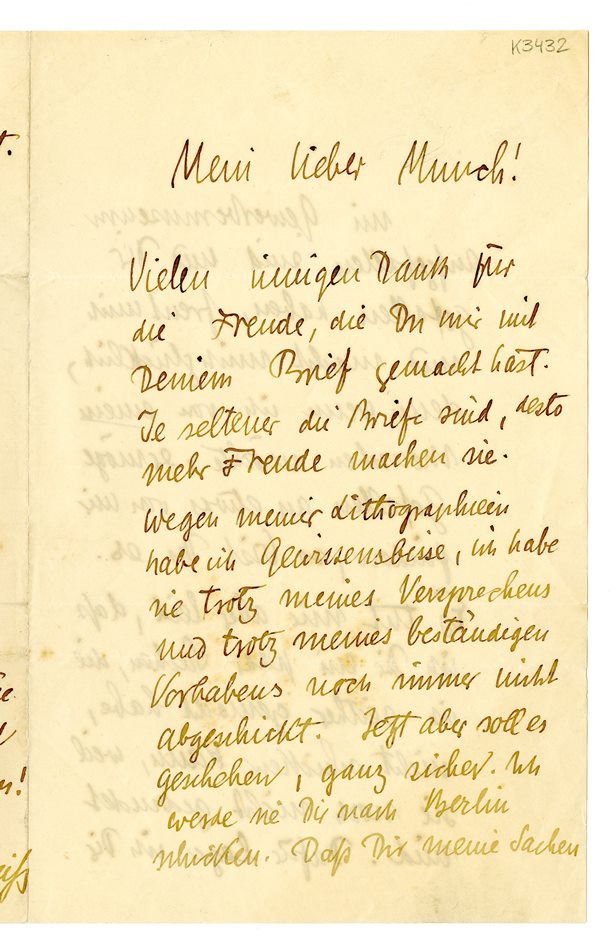 K3432
Mein lieber Munch!
Vielen innigen Dank für
die Freude, die Du mir mit
Deinem Brief gemacht hast.
Je seltener die Briefe sind, desto
mehr Freude machen sie.
Wegen meiner Lithographieen
habe ich Gewissensbisse, ich habe
sie trotz meines Versprechens
und trotz meines beständigen
Vorhabens noch immer nicht
abgeschickt. Jetzt aber soll es
geschehen, ganz sicher. Ich
werde sie Dir nach Berlin
schicken. Daß Dir meine Sachen